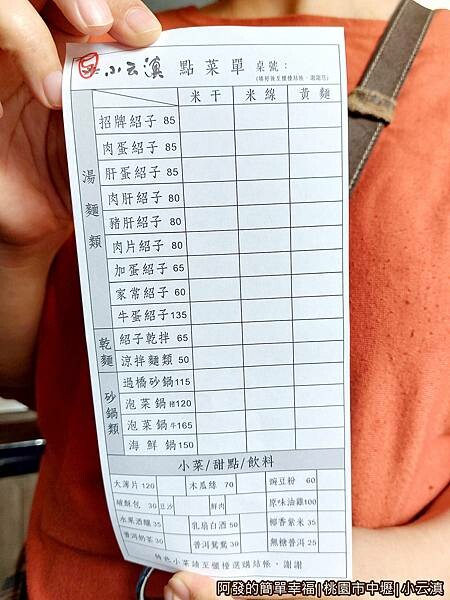 小云滇 點菜單 桌號：
(填好後至櫃檯結帳，謝謝您)
米干 米線 黃麵
湯麵類
招牌紹子 85
肉蛋紹子 85
肝蛋紹子 85
肉肝紹子 80
豬肝紹子 80
肉片紹子 80
加蛋紹子 65
家常紹子 60
牛蛋紹子 135
乾麵
紹子乾拌 65
涼拌麵類 50
砂鍋類
過橋砂鍋 115
泡菜鍋 豬 120
泡菜鍋 牛 165
海鮮鍋 150
小菜/甜點/飲料
大薄片 120 木瓜絲 70 豌豆粉 60
破酥包 30 豆沙 鮮肉 原味油雞 100
水果酒釀 35 乳扇白酒 50 椰香紫米 35
普洱奶茶 30 普洱鴛鴦 30 無糖普洱 25
特色小菜請至櫃檯選購結帳，謝謝
阿發的簡單幸福|桃園市中壢|小云滇